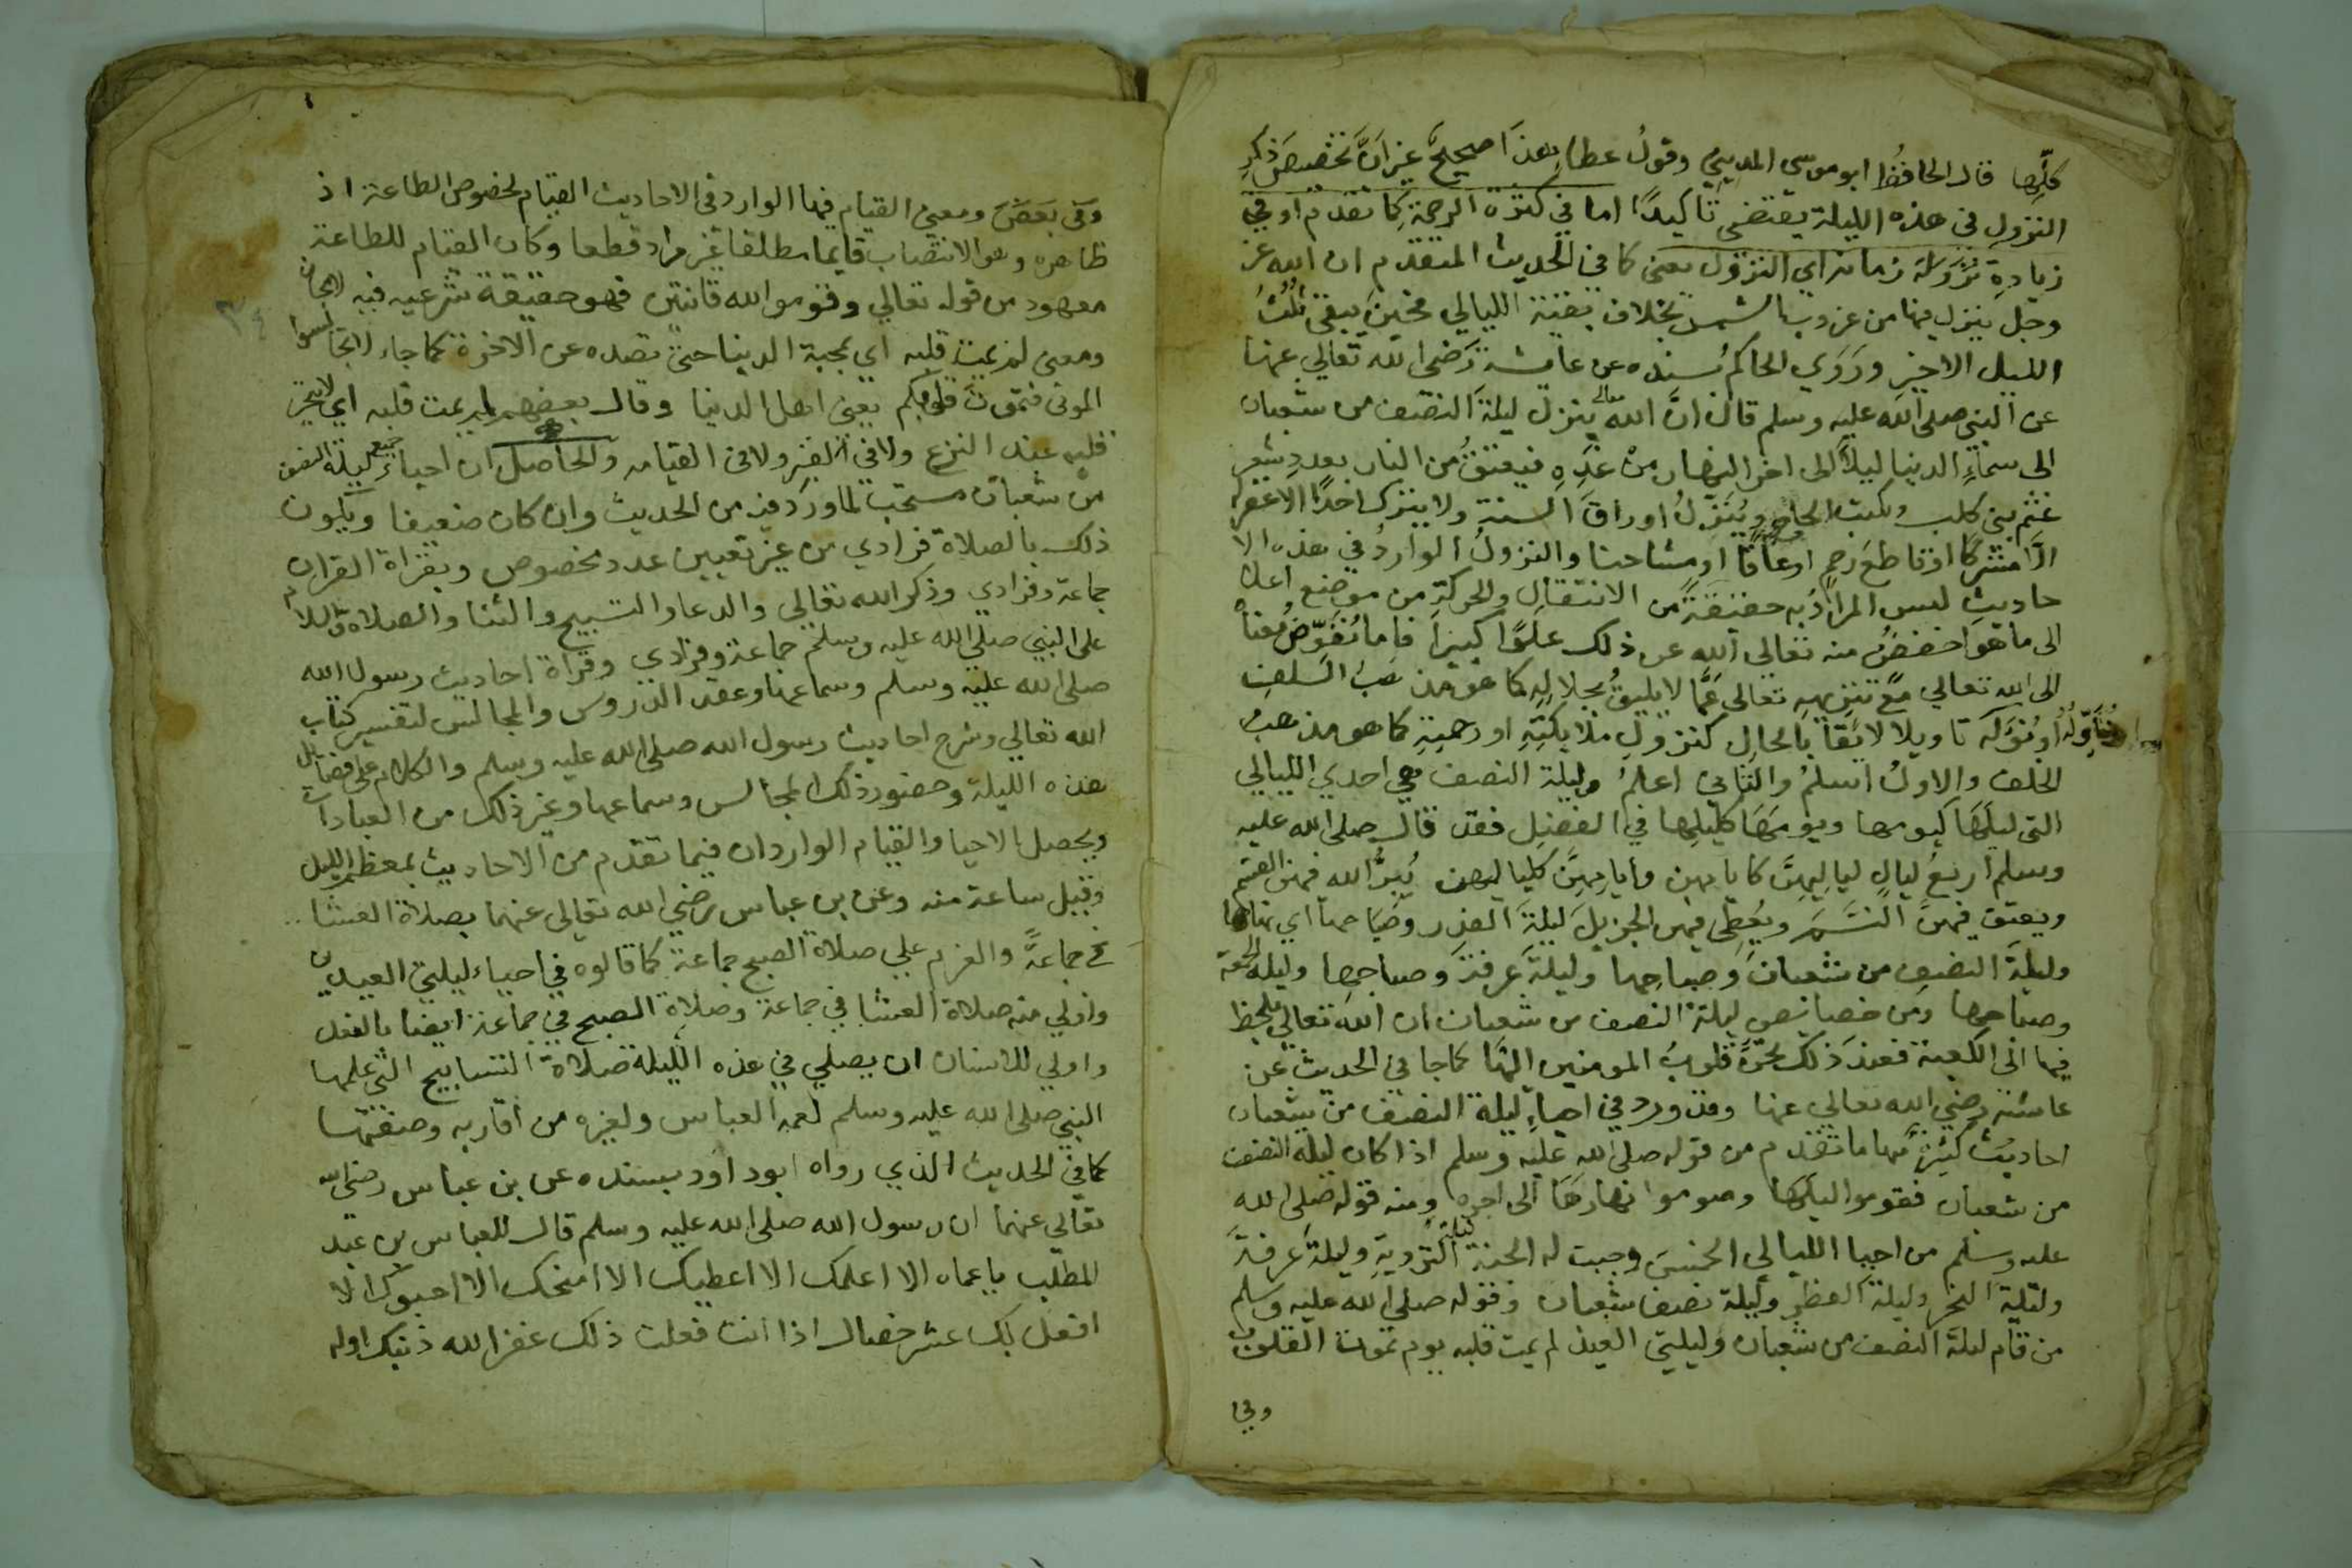 كلّها قال الحافظُ ابو موسى المديني وقولُ عطاء هذا صحيحٌ غير انَّ تخصيصَ ذكرِ
النزولِ في هذه الليلة يقتضى تاكيدًا اما في كثرة الرحمة كما تقدم او في
زيادة نزوله زمان اي النزول يعنى كما في الحديث المتقدم ان الله عز
وجل ينزل فيها من غروب الشمس بخلاف بقية الليالي فحين يبقى ثُلُثُ
الليل الاخير ورَوَي الحاكم بسنده عن عايشة رَضي الله تعالي عنها
عن النبي صلى الله عليه وسلم قال انَّ الله تعالى ينزل ليلةَ النصف من شعبان
الى سماءِ الدنيا ليلاً الى اخر النهار منْ غدِهِ فيعتقُ من النار بعددِ شعرِ
غنم بني كلب ويكتب الحاج ويُنَزِّلُ اوراقَ السنةِ ولا يترك احدًا الا غفر له
الا مشركًا او قاطعَ رحمٍ او عاقًا او مشاحنا والنزولُ الواردُ في هذه الا
حاديثِ ليس المرادُ به حقيقتهُ من الانتقالِ والحركةِ من موضع اعلا
الى ما هو اخفضُ منه تعالي الله عن ذلك علوًّا كبيرًا فاما نُفوّضُ معناهُ
الى الله تعالي مع تنزيههِ تعالى عَمَّا لا يليقُ بجلالهِ كما هو مذهبُ السلفِ
او نُؤَوّلَهُ تاويلا لائقًا بالحالِ كنزولِ ملائكتِهِ او رحمتِهِ كما هو مذهبُ
الخلف والاولُ اسلمُ والثاني اعلمُ وليلة النصف هي احدي الليالي
التى ليلَهَا كيومها ويومَهَا كليلِها في الفضلِ فقد قال صلى الله عليه
وسلم اربعُ ليالٍ لياليهنَّ كايامهن وايامهِنَّ كلياليهن يُبرُّ الله فيهن القسَم
ويعتق فيهنَّ النَّسَمَ ويُعطِى فيهن الجزيلَ ليلةَ القدر وصباحها اي نهارها
وليلةَ النصفِ من شعبانَ وصباحِها وليلةَ عرفةَ وصباحِها وليلة الجمعة
وصباحها ومن خصائصِ ليلةِ النصف من شعبان ان الله تعالي يلحظ
فيها الى الكعبة فعند ذلك تحنّ قلوبُ المومنين اليها كما جا في الحديث عن
عائشة رضي الله تعالي عنها وقد ورد في احياءِ ليلة النصف من شعبان
احاديثُ كثيرةٌ منها ما تقدم من قوله صلى الله عليه وسلم اذا كان ليلة النصف
من شعبان فقوموا ليلَها وصوموا نهارَهَا الى اخره ومنه قوله صلى الله
عليه وسلم من احيا الليالي الخمسَ وجبت له الجنة ليلةَ الترويةِ وليلةَ عرفةَ
وليلة النحر وليلة الفطرِ وليلة نصف شعبان وقوله صلي الله عليه وسلم
من قام ليلة النصف من شعبان وليلتي العيد لم يمت قلبه يوم تموت القلوب
وفي
وفي بعض ومعنى القيام فيها الوارد في الاحاديث القيام لخصوص الطاعة اذ
ظاهره وهو الانتصاب قايما مطلقا غير مراد قطعا وكان القيام للطاعة
معهود من قوله تعالي وقوموا لله قانتين فهو حقيقة شرعيه فيه
ومعنى لم يمت قلبه اي بمحبة الدنيا حتى تصده عن الاخرة كما جاء لا تجالسوا
الموتى فتموت قلوبكم يعنى اهل الدنيا وقال بعضهم لم يمت قلبه اي لا يتحير
قلبه عند النزع ولا في القبر ولا في القيامه والحاصل ان احياء جميع ليلة النصف
من شعبان مستحب لما ورد فيه من الحديث وان كان ضعيفا ويكون
ذلك بالصلاة فرادي من غير تعيين عدد مخصوص وبقراة القران
جماعة وفرادي وذكر الله تعالي والدعا والتسبيح والثنا والصلاة والسلام
على النبي صلى الله عليه وسلم جماعة وفرادي وقراة احاديث رسول الله
صلى الله عليه وسلم وسماعها وعقد الدروس والمجالس لتفسير كتاب
الله تعالي وشرح احاديث رسول الله صلى الله عليه وسلم والكلام على فضايل
هذه الليلة وحضور ذلك المجالس وسماعها وغير ذلك من العبادات
ويحصل الاحيا والقيام الواردان فيما تقدم من الاحاديث بمعظم الليل
وقيل ساعة منه وعن بن عباس رضي الله تعالى عنهما بصلاة العشا
في جماعةً والعزم علي صلاة الصبح جماعة كما قالوه في احياء ليلتي العيدين
واولي منه صلاة العشا في جماعة وصلاة الصبح في جماعة ايضا بالفعل
واولي للانسان ان يصلي في هذه الليلة صلاة التسابيح التى علمها
النبي صلى الله عليه وسلم لعمه العباس ولغيره من اقاربه وصفتها
كما في الحديث الذي رواه ابو داود بسنده عن بن عباس رضي الله
تعالي عنهما ان رسول الله صلى الله عليه وسلم قال للعباس بن عبد
المطلب يا عماه الا اعلمك الا اعطيك الا امنحك الا احبوك الا
افعل بك عشر خصال اذا انت فعلت ذلك غفر الله ذنبك اوله